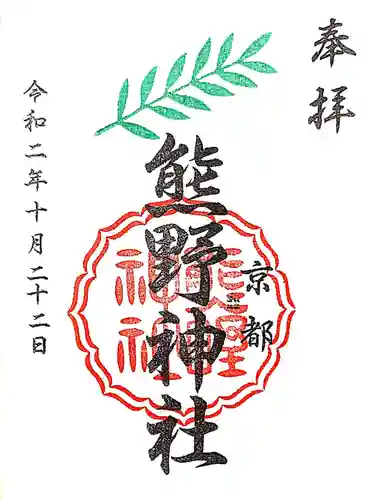 奉拝
京都
熊野神社
熊野神社
令和二年十月二十二日